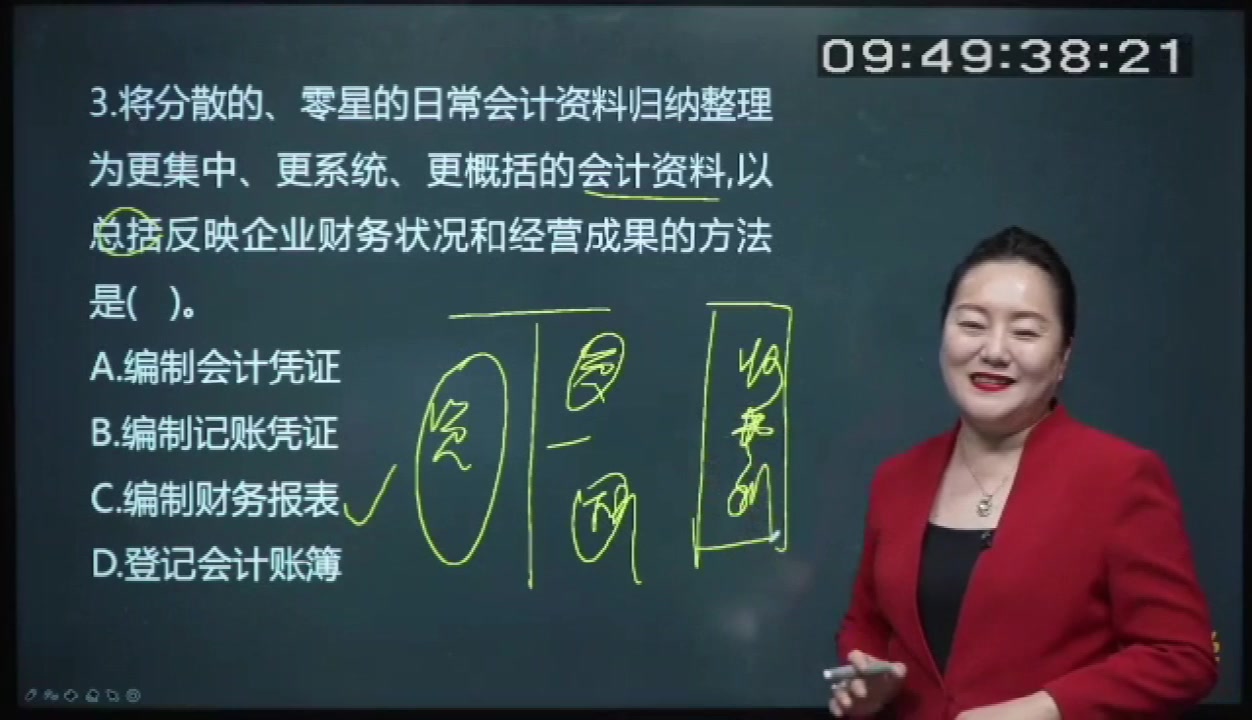 09:49:38:21
3.将分散的、零星的日常会计资料归纳整理
为更集中、更系统、更概括的会计资料,以
总括反映企业财务状况和经营成果的方法
是(   )。
A.编制会计凭证
B.编制记账凭证
C.编制财务报表
D.登记会计账簿